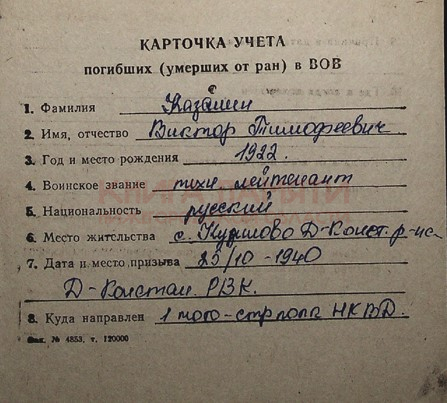 КАРТОЧКА УЧЕТА
погибших (умерших от ран) в ВОВ
1. Фамилия Казамин
2. Имя, отчество Виктор Тимофеевич
3. Год и место рождения 1922.
4. Воинское звание техн. лейтенант
5. Национальность русский
6. Место жительства с. Курилово Д-Конст. р-на
7. Дата и место призыва 25/10-1940
Д-Констан. РВК.
8. Куда направлен 1 мото-стр полк НКВД.
Зак. № 4853, т. 120000